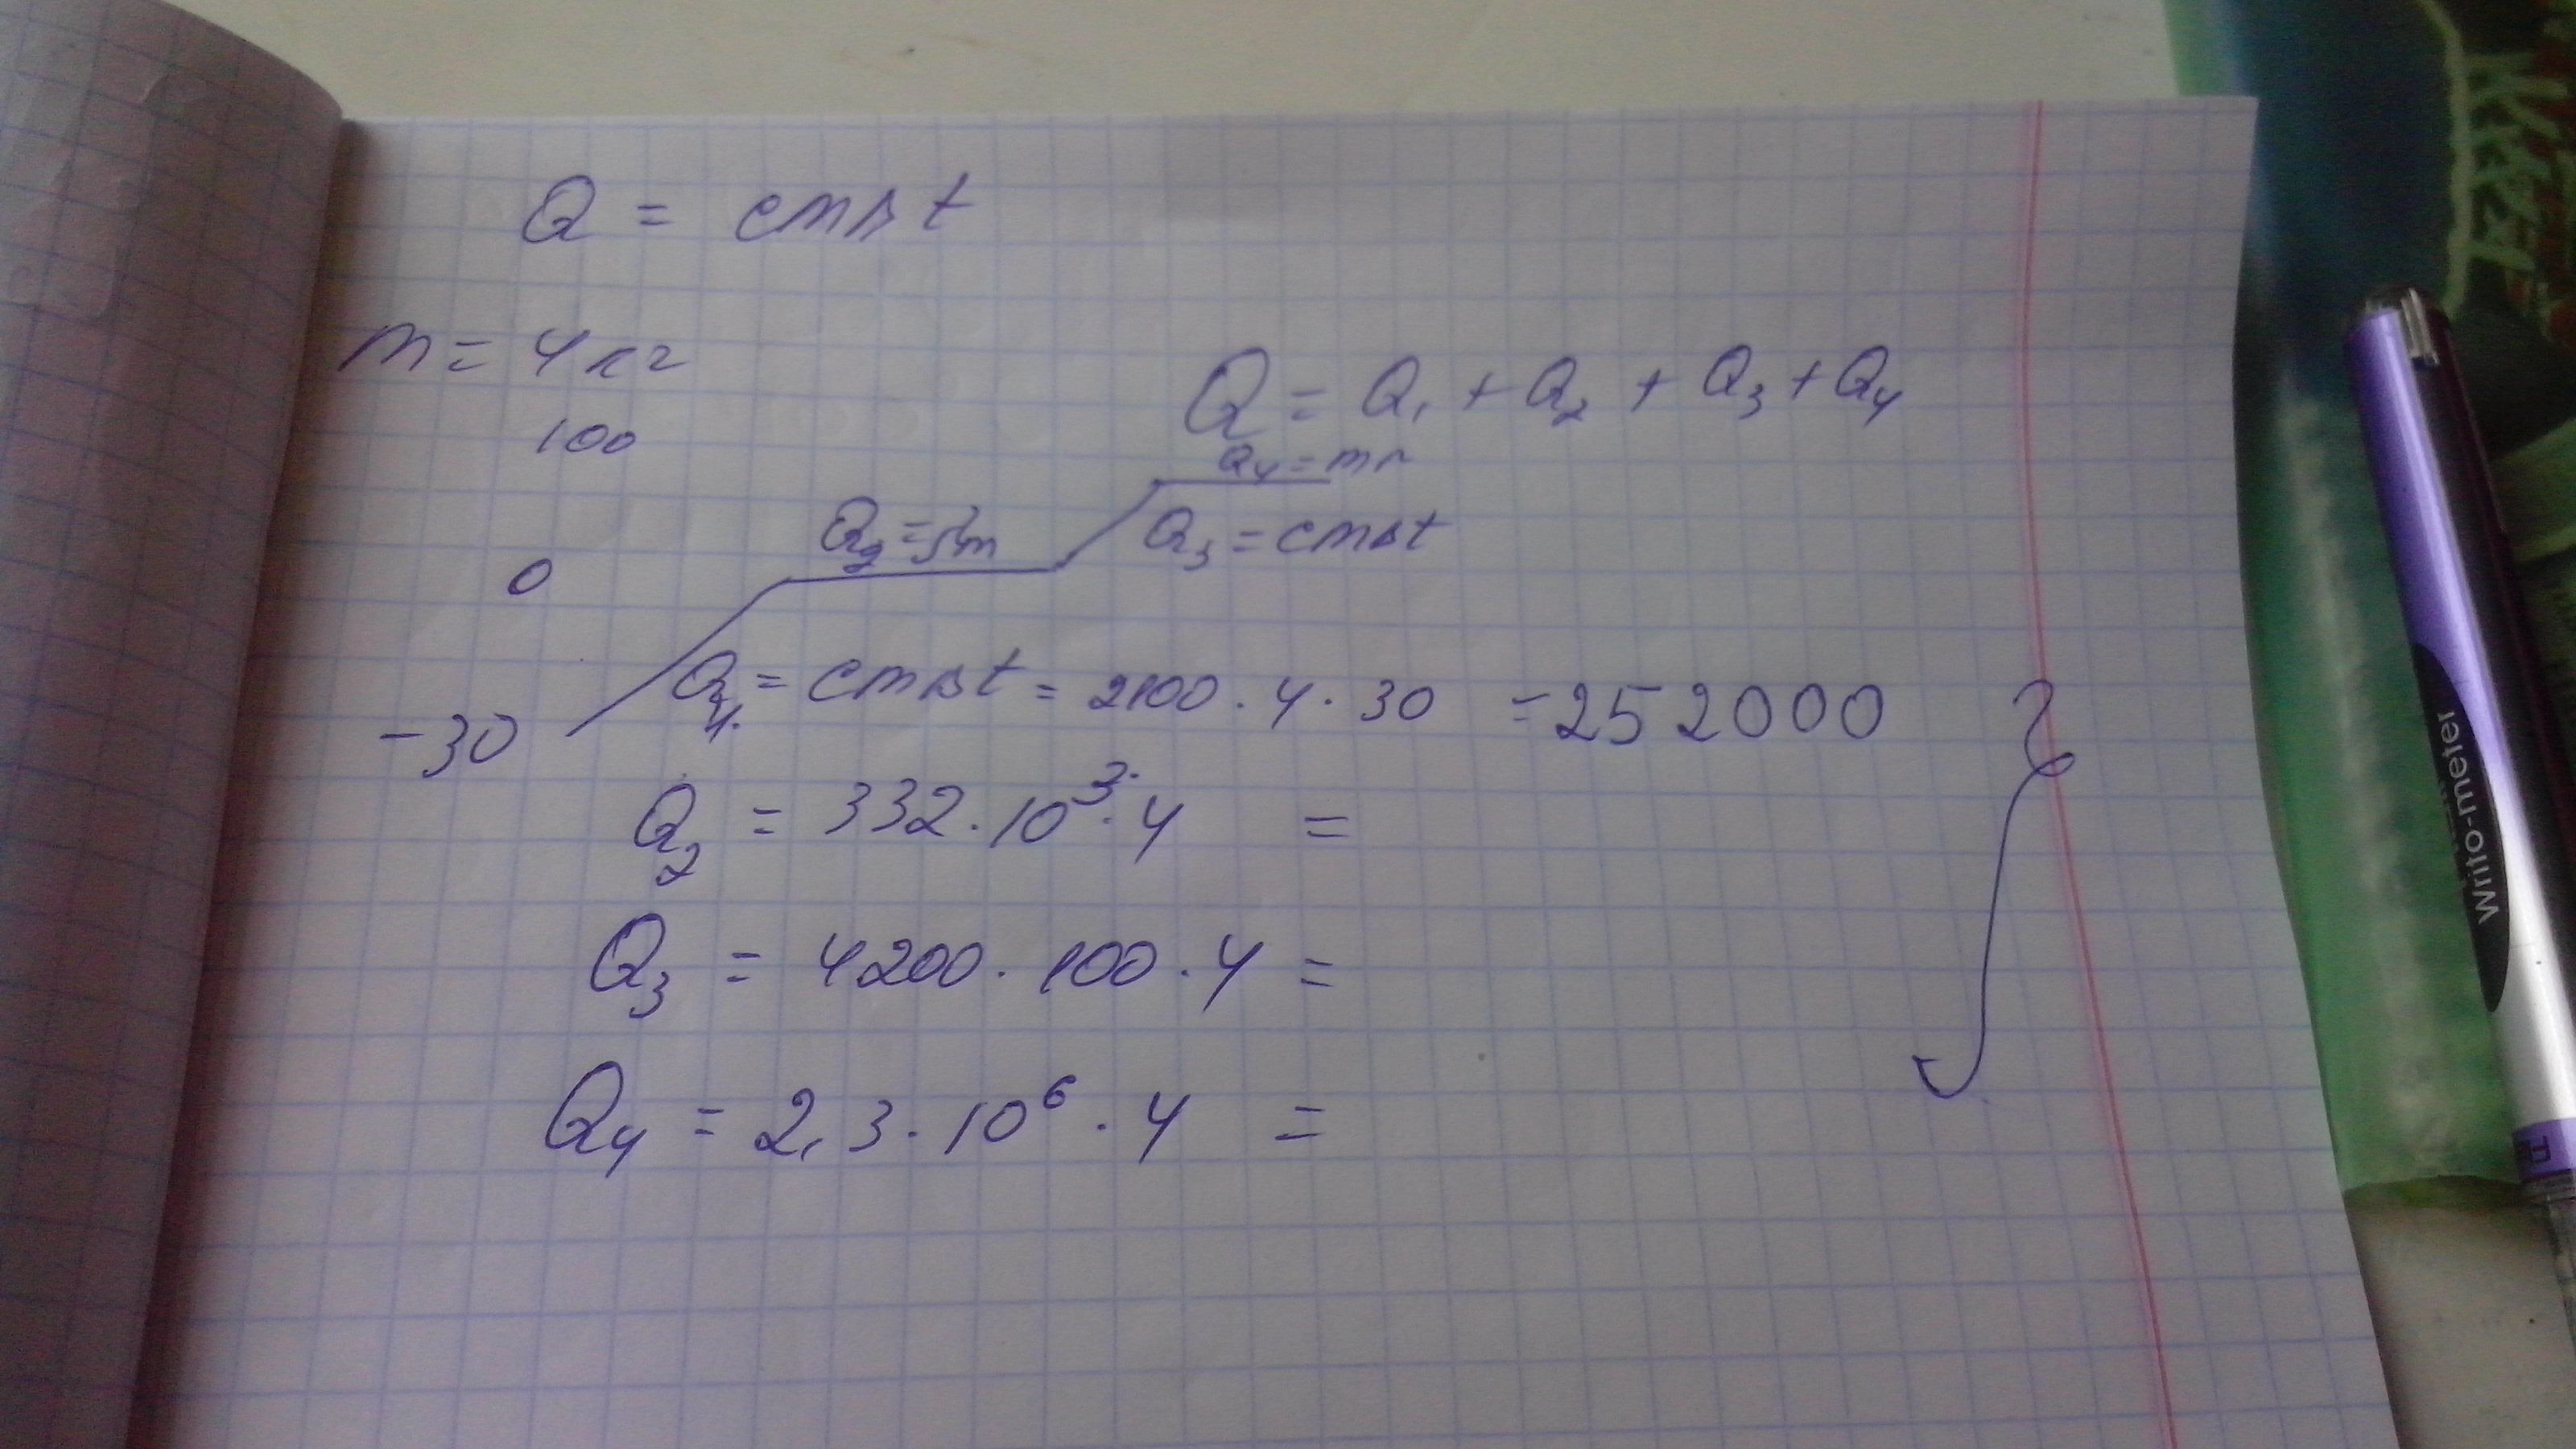 Q = cmΔt
m = 4 кг
Q = Q₁ + Q₂ + Q₃ + Q₄
100
Q₄ = mr
Q₂ = λm
Q₃ = cmΔt
0
Q₁ = cmΔt = 2100 · 4 · 30 = 252000
-30
Q₂ = 332 · 10³ · 4 =
Q₃ = 4200 · 100 · 4 =
Q₄ = 2,3 · 10⁶ · 4 =
Writo-meter